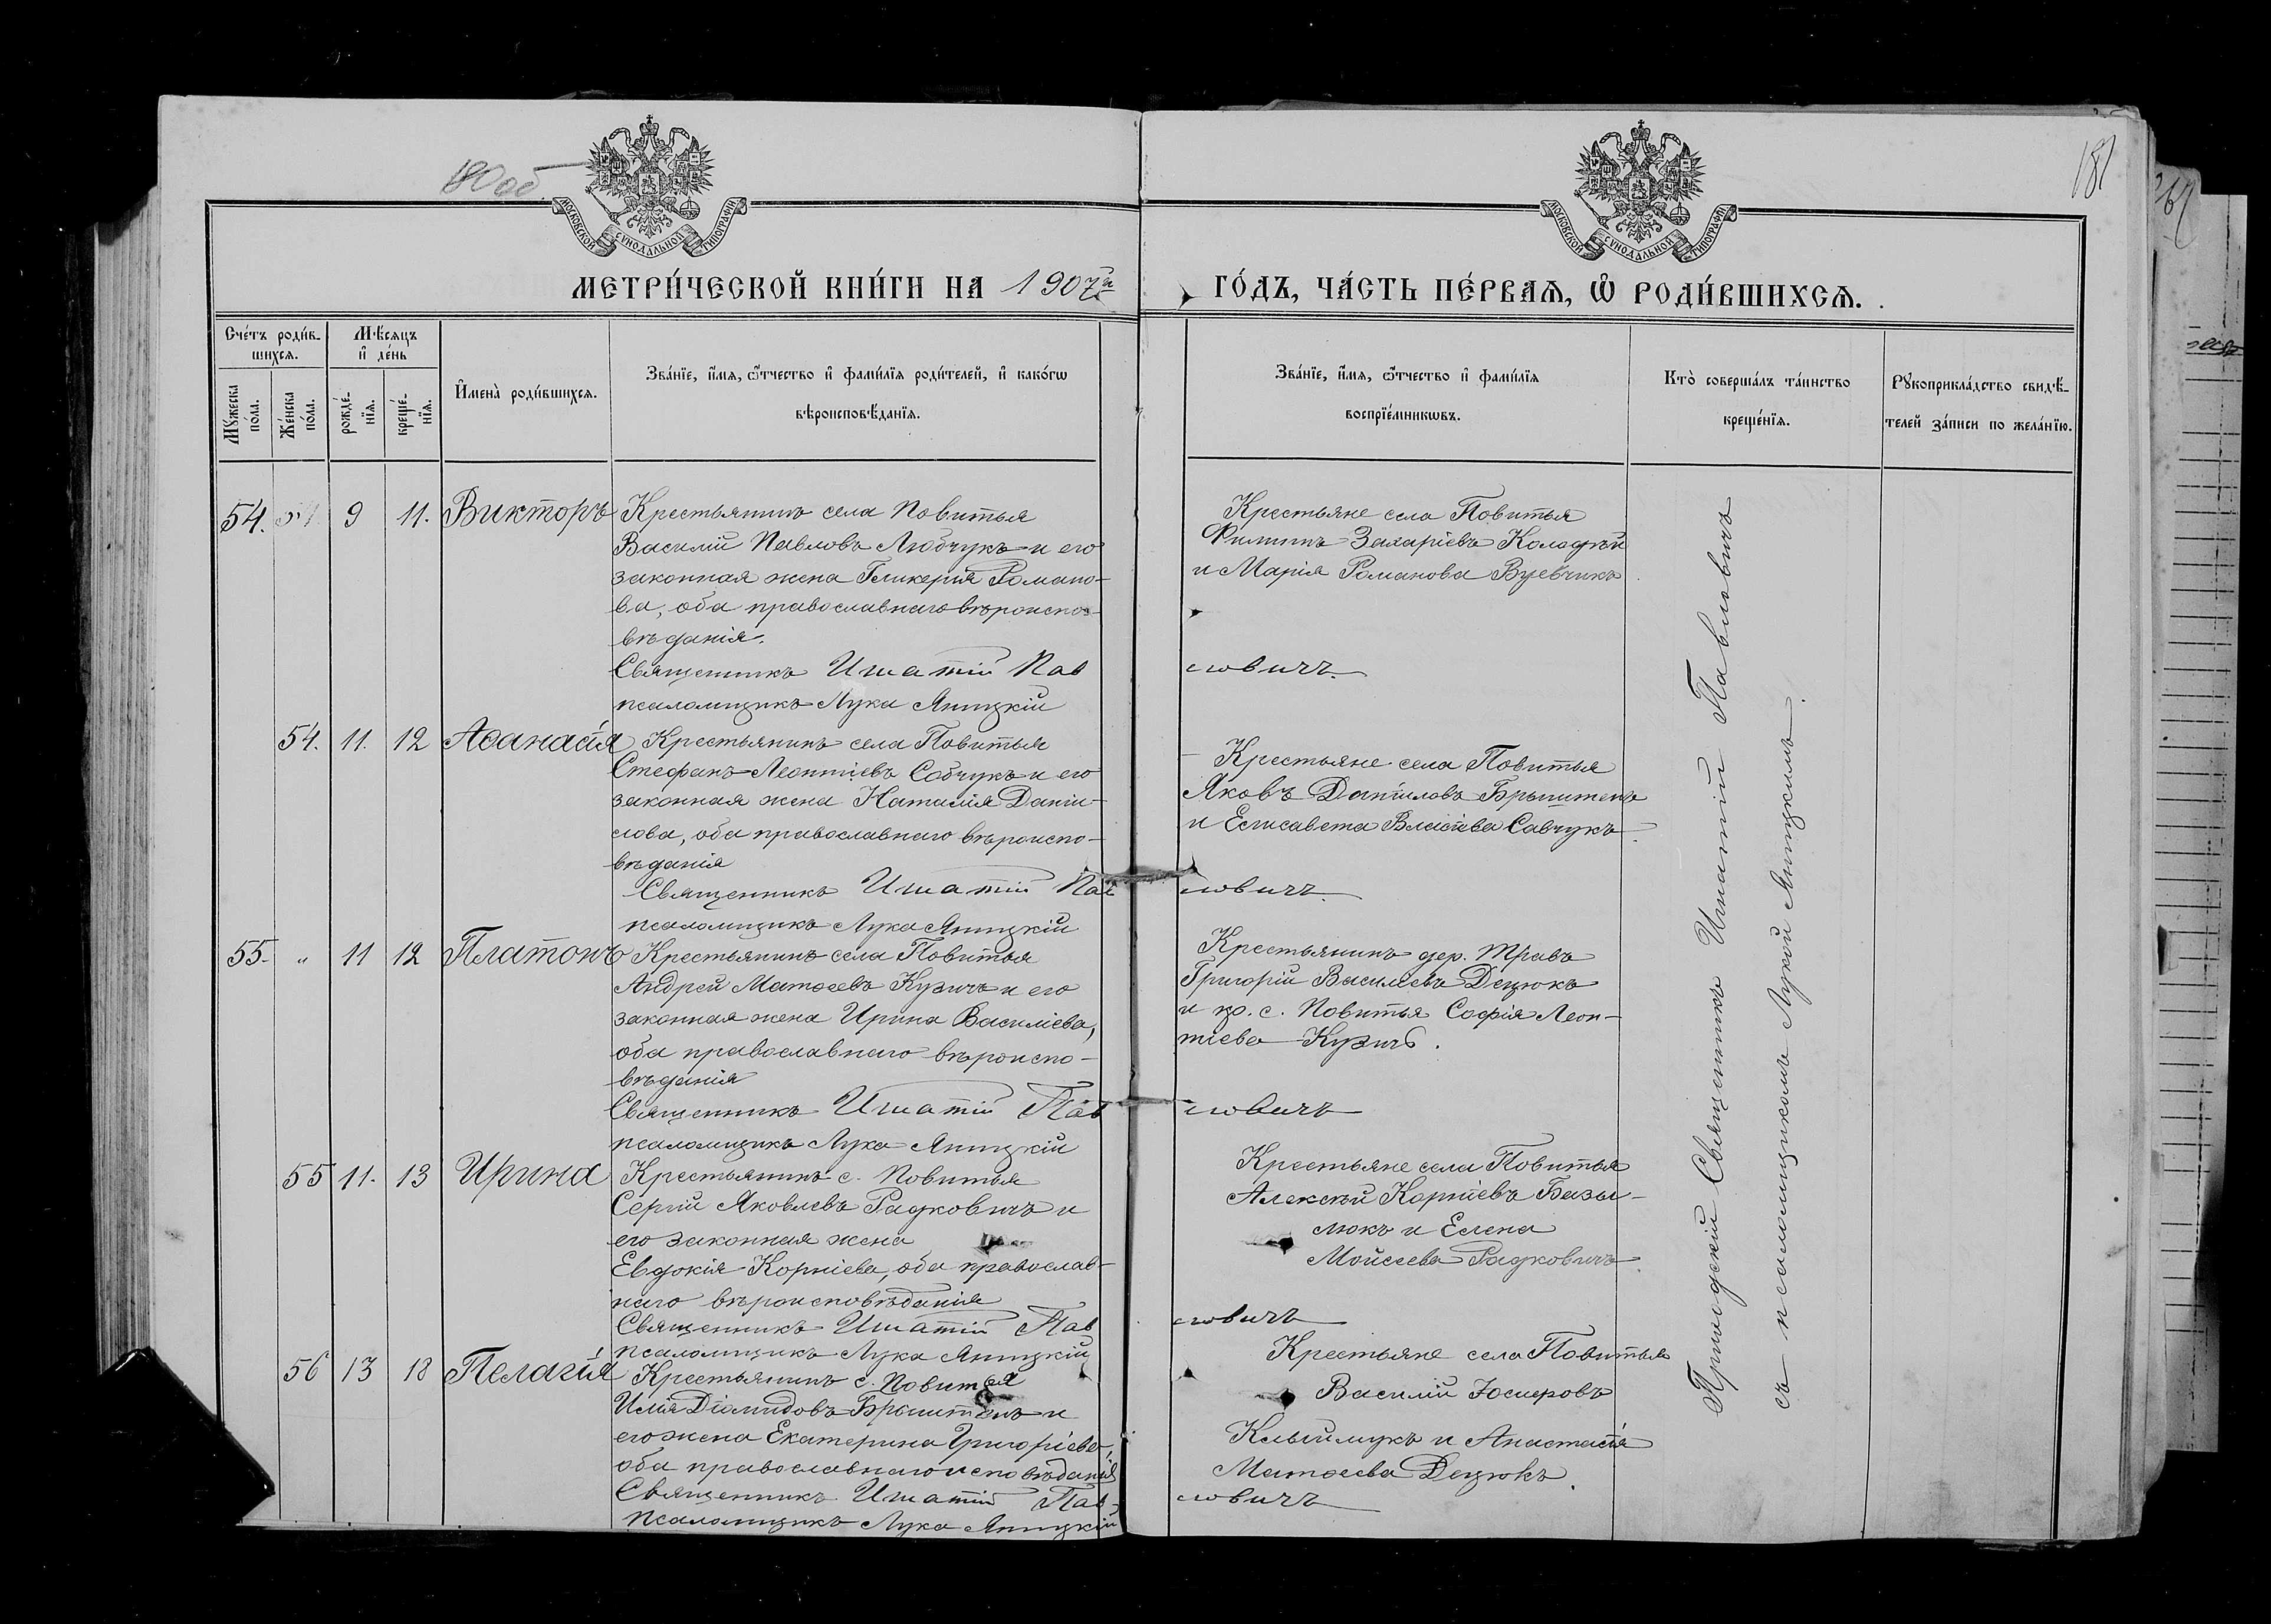 180 об
181
МОСКОВСКОЙ СУНОДАЛЬНОЙ ТИПОГРАФІИ
МОСКОВСКОЙ СУНОДАЛЬНОЙ ТИПОГРАФІИ
МЕТРИ́ЧЕСКОЙ КНИ́ГИ НА 1907й
ГО́ДЪ, ЧА́СТЬ ПЕ́РВАѦ, Ѽ РОДИ́ВШИХСѦ.
Счéтъ роди́в-
шихсѧ.
Мꙋ́жеска
по́ла.
Же́нска
по́ла.
Мѣ́сѧцъ
и҆ де́нь
рожде́-
нїѧ.
креще́-
нїѧ.
И҆мена̀ роди́вшихсѧ.
Зва́нїе, и҆́мѧ, ѻ҆́тчество и҆ фами́лїѧ роди́телей, и҆ како́гѡ
вѣроисповѣ́данїѧ.
Зва́нїе, и҆́мѧ, ѻ҆́тчество и҆ фами́лїѧ
воспрїе́мникѡвъ.
Кто̀ соверша́лъ та́инство
креще́нїѧ.
Рꙋкоприкла́дство свидѣ́-
телей за́писи по жела́нїю.
54. 9 11. Викторъ
Крестьянинъ села Повитья
Василій Павловъ Любчукъ и его
законная жена Гликерія Романо-
ва, оба православнаго вѣроиспо-
вѣданія.
Священникъ Игнатій Пав
ловичъ.
псаломщикъ Лука Яницкій
Крестьяне села Повитья
Филиппъ Захаріевъ Колодѣй
и Марія Романова Вуевчикъ
54. 11. 12 Аѳанасія
Крестьянинъ села Повитья
Стефанъ Леонтіевъ Собчукъ и его
законная жена Наталія Даніи-
лова, оба православнаго вѣроиспо-
вѣданія
Священникъ Игнатій Пав
ловичъ.
псаломщикъ Лука Яницкій
Крестьяне села Повитья
Яковъ Даніиловъ Брынтенъ
и Елисавета Власіева Савчукъ
55. „ 11 12 Платонъ
Крестьянинъ села Повитья
Андрей Матѳеевъ Кузичъ и его
законная жена Ирина Василіева,
оба православнаго вѣроиспо-
вѣданія
Священникъ Игнатій Пав
ловичъ
псаломщикъ Лука Яницкій
Крестьянинъ дер. Травъ
Григорій Василіевъ Децюкъ
и кр. с. Повитья Софія Леон-
тіева Кузичъ.
55 11. 13 Ирина
Крестьянинъ с. Повитья
Сергій Яковлевъ Радковичъ и
его законная жена
Евдокія Корніева, оба православ-
наго вѣроисповѣданія
Священникъ Игнатій Пав
ловичъ
псаломщикъ Лука Яницкій
Крестьяне села Повитья
Алексѣй Корніевъ Базы-
люкъ и Елена
Моисеева Радковичъ
56 13 18 Пелагія
Крестьянинъ с. Повитья
Илія Діомидовъ Брынтенъ и
его жена Екатерина Григоріева,
оба православнаго исповѣданія
Священникъ Игнатій Пав-
ловичъ
псаломщикъ Лука Яницкій
Крестьяне села Повитья
Василій Іосифовъ
Климукъ и Анастасія
Матѳеева Децюкъ.
Приходскій Священникъ Игнатій Павловичъ
съ псаломщикомъ Лукой Яницкимъ.